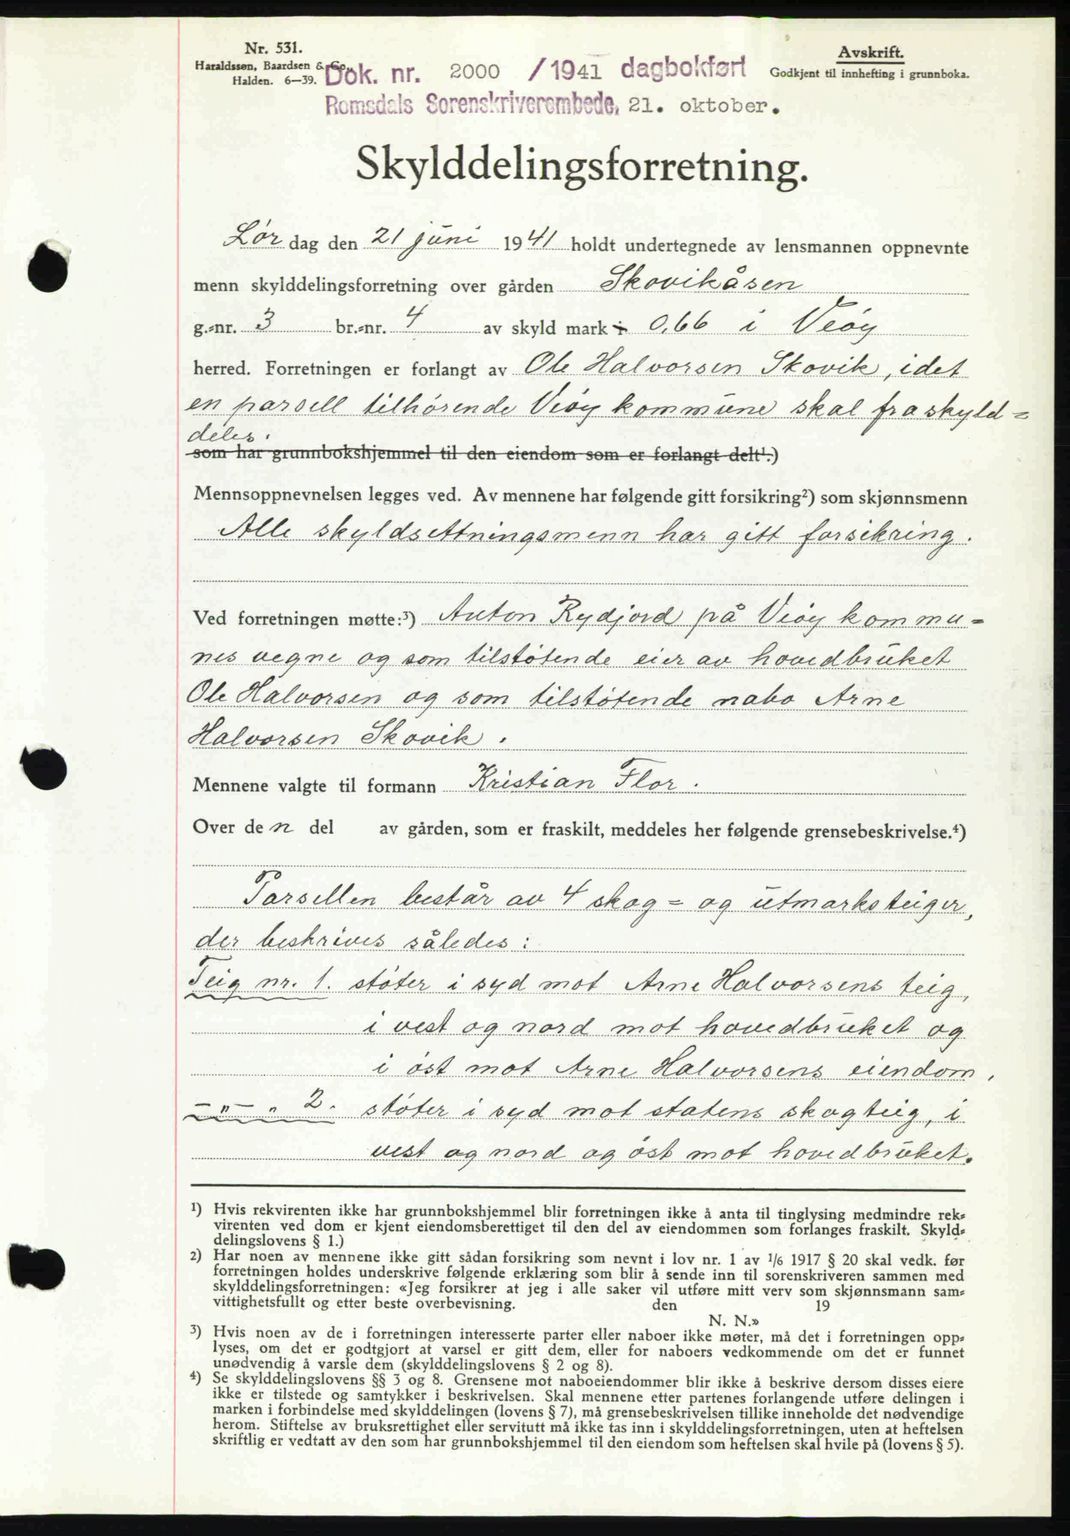 Nr. 531.
Haraldssøn, Baardsen & Co.,
Halden. 6—39.
Dok. nr. 2000 /1941 dagbokført
Romsdals Sorenskriverembede, 21. oktober.
Avskrift.
Godkjent til innhefting i grunnboka.
Skylddelingsforretning.
Lør dag den 21 juni 1941 holdt undertegnede av lensmannen oppnevnte
menn skylddelingsforretning over gården Skovikåsen
g.=nr. 3 br.=nr. 4 av skyld mark 0,66 i Veøy
herred. Forretningen er forlangt av Ole Halvorsen Skovik, idet
en parsell tilhørende Veøy kommune skal fraskyld=
deles.
som har grunnbokshjemmel til den eiendom som er forlangt delt¹.)
Mennsoppnevnelsen legges ved. Av mennene har følgende gitt forsikring²) som skjønnsmenn
Alle skyldsettningsmenn har gitt forsikring.
Ved forretningen møtte:³) Anton Rydjord på Veøy kommu=
nes vegne og som tilstøtende eier av hovedbruket
Ole Halvorsen og som tilstøtende nabo Arne
Halvorsen Skovik.
Mennene valgte til formann Kristian Flor.
Over de n del av gården, som er fraskilt, meddeles her følgende grensebeskrivelse.⁴)
Parsellen består av 4 skog= og utmarksteiger,
der beskrives således:
Teig nr. 1. støter i syd mot Arne Halvorsens teig,
i vest og nord mot hovedbruket og
i øst mot Arne Halvorsens eiendom.
—"— " 2. støter i syd mot statens skogteig, i
vest og nord og øst mot hovedbruket.
¹) Hvis rekvirenten ikke har grunnbokshjemmel blir forretningen ikke å anta til tinglysing medmindre rek=
virenten ved dom er kjent eiendomsberettiget til den del av eiendommen som forlanges fraskilt. Skyld=
delingslovens § 1.)
²) Har noen av mennene ikke gitt sådan forsikring som nevnt i lov nr. 1 av 1/6 1917 § 20 skal vedk. før
forretningen holdes underskrive følgende erklæring som blir å sende inn til sorenskriveren sammen med
skylddelingsforretningen: «Jeg forsikrer at jeg i alle saker vil utføre mitt verv som skjønnsmann sam=
vittighetsfullt og etter beste overbevisning. den 19
N. N.»
³) Hvis noen av de i forretningen interesserte parter eller naboer ikke møter, må det i forretningen opp=
lyses, om det er godtgjort at varsel er gitt dem, eller for naboers vedkommende om det er funnet
unødvendig å varsle dem (skylddelingslovens § 2 og 8).
⁴) Se skylddelingslovens §§ 3 og 8. Grensene mot naboeiendommer blir ikke å beskrive dersom disses eiere
ikke er tilstede og samtykker i beskrivelsen. Skal mennene etter partenes forlangende utføre delingen i
marken i forbindelse med skylddelingen (lovens § 7), må grensebeskrivelsen tillike inneholde det nødvendige
herom. Stiftelse av bruksrettighet eller servitutt må ikke tas inn i skylddelingsforretningen, uten at heftelsen
skriftlig er vedtatt av den som har grunnbokshjemmel til den eiendom som heftelsen skal hvile på (lovens § 5).